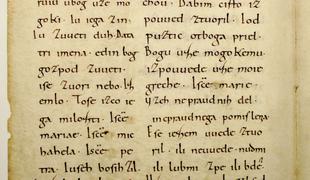 mogoki · iu iega zin·
iu zuueti duh· Da ta
tri imena · edin bog
gozpod zuueti ·
ise zuori nebo · Ise
zemlo · Tose izco ie
ga milosti · Isce
mariae · Isce mic
hahela · Isce pe
tra · Iusech bosih zil
chou · Dabim cisto iz
pouued ztuoril · Iod
puztic otboga priel ·
Bogu uze mogokemu ·
izpouuede uze moie
greche · Isce marie ·
Uzech nepraudnih del ·
inepraudnega pomislena ·
Ese iezem uuede ztuo
ril · ili neuuede · nudmi
ili lubmi zpe ili bde ·